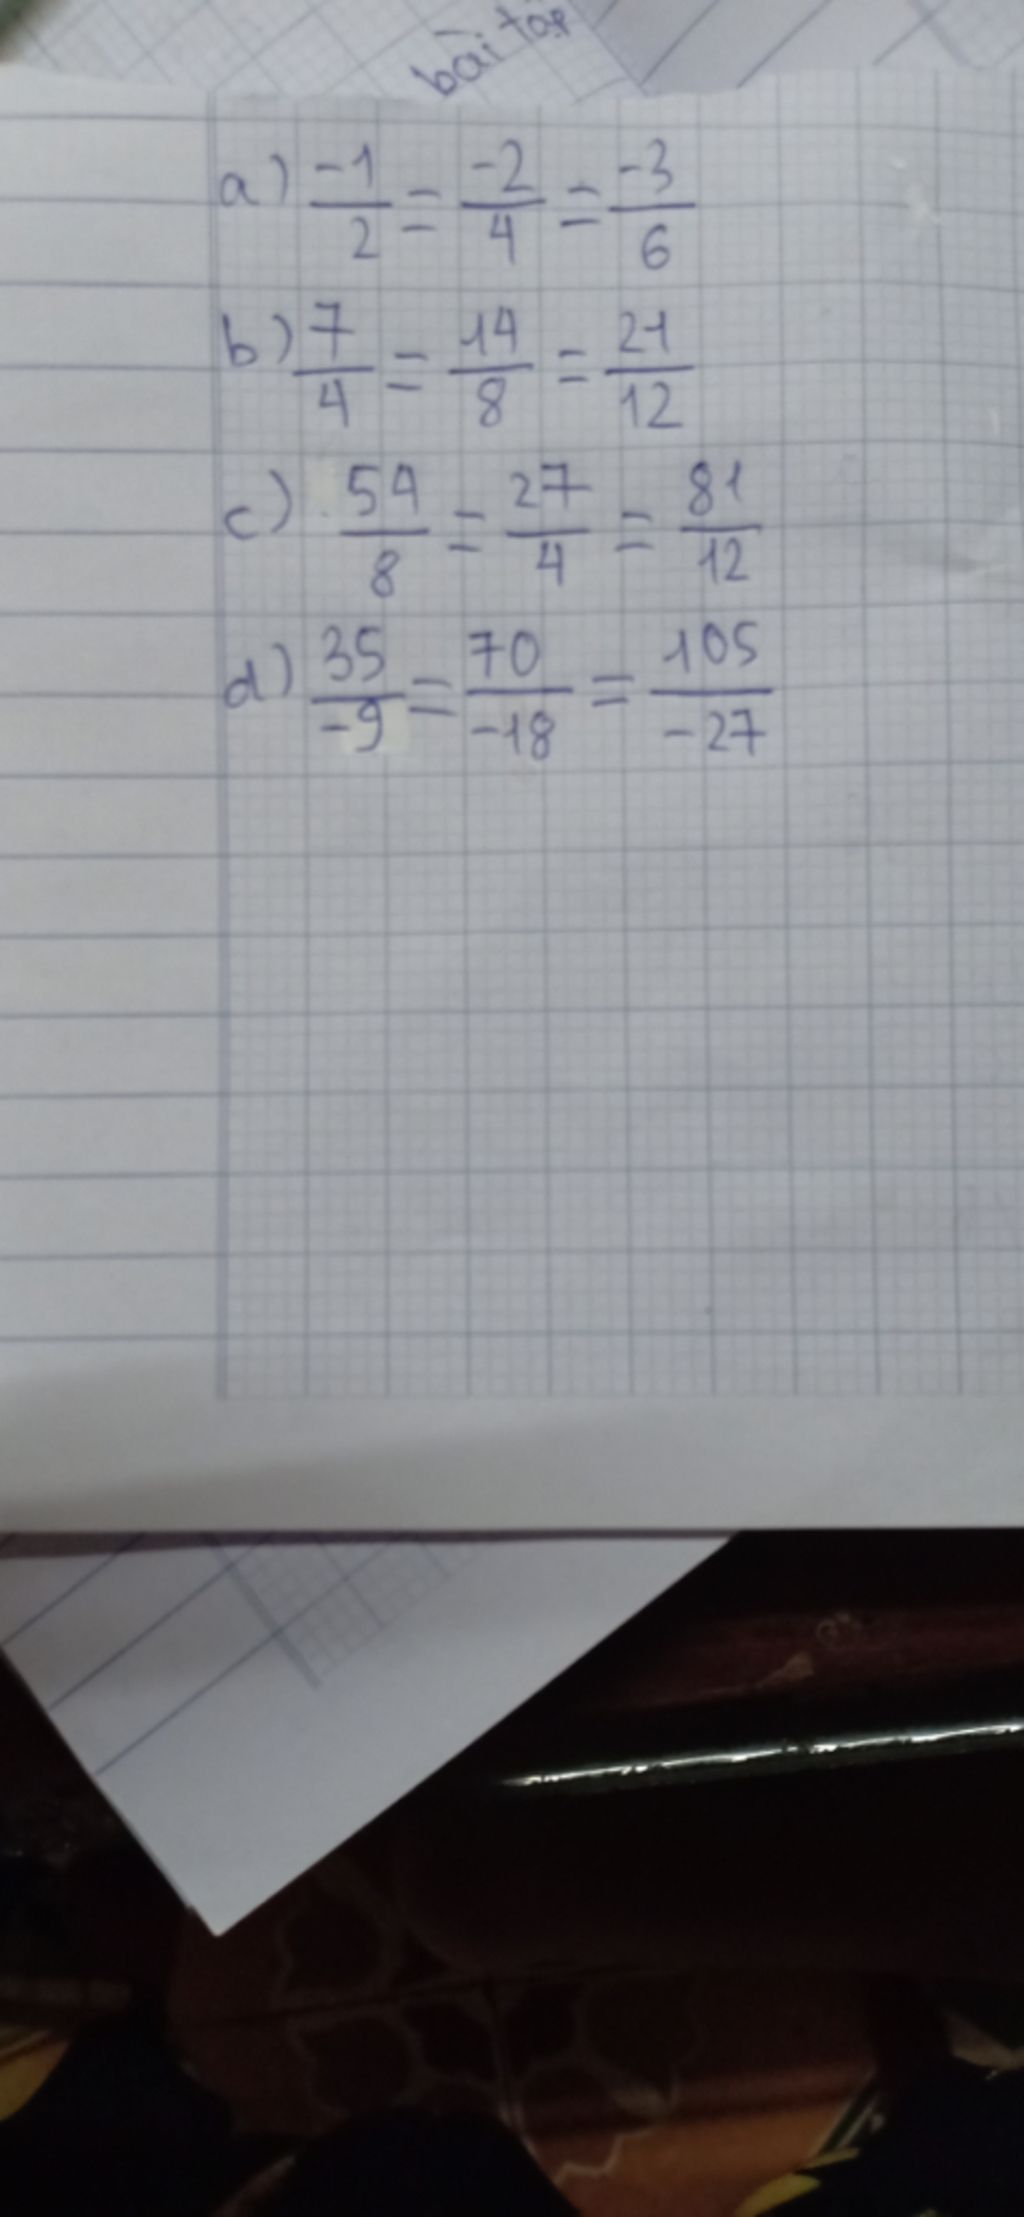 bài tập
a) -1/2 = -2/4 = -3/6
b) 7/4 = 14/8 = 21/12
c) 54/8 = 27/4 = 81/12
d) 35/-9 = 70/-18 = 105/-27